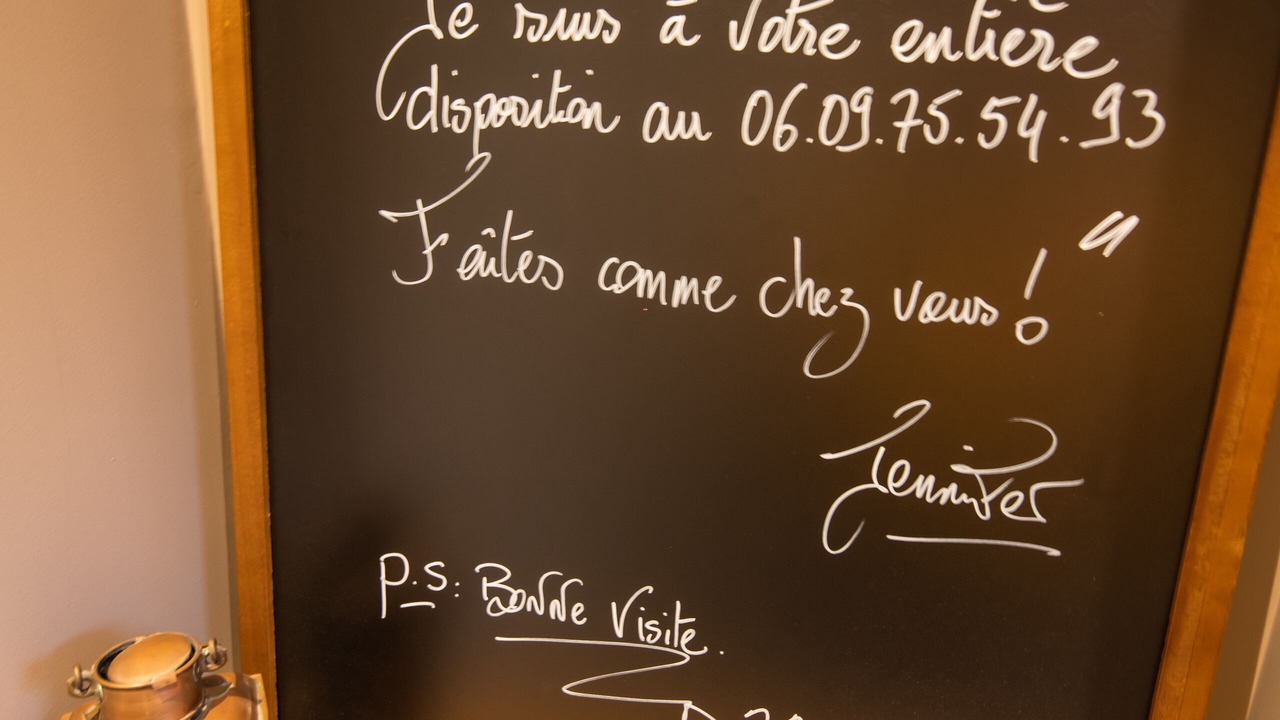 Je suis à votre entière
disposition au 06.09.75.54.93
Faîtes comme chez vous ! "
Jennifer
P.S: Bonne Visite.